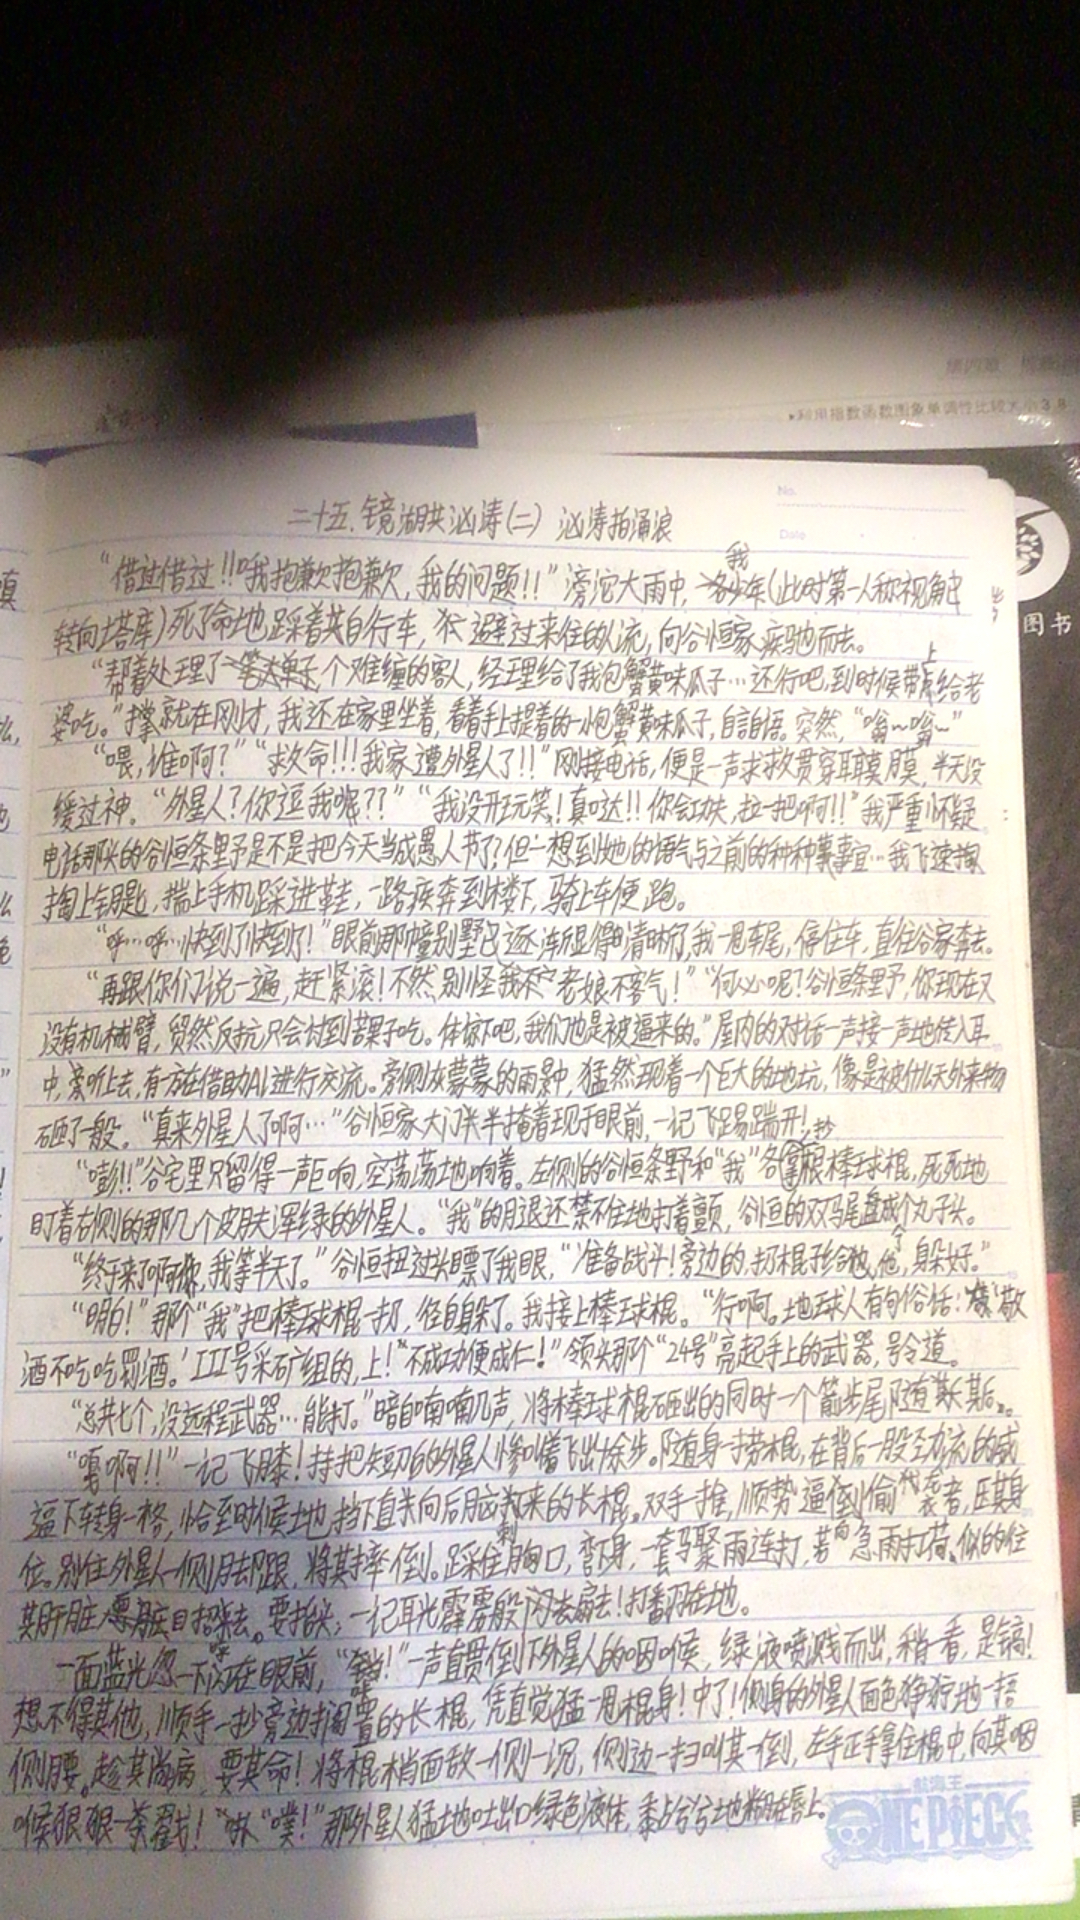 二十五.镜湖共汹涛(二) 汹涛拍涌浪
"借过借过!!哦抱歉抱歉,我的问题!!"滂沱大雨中,我(此时第一人称视角
转向塔库)死了命地踩着共自行车,避过来往的人流,向谷恒家疾驰而去。
"帮着处理了个难缠的客人,经理给了我包蟹黄味瓜子…还行吧,到时候带上给老
婆吃。"就在刚才,我还在家里坐着,看着手上提着的一小包蟹黄味瓜子,自言自语。突然,"嗡~嗡~"
"喂,谁啊?""救命!!!我家遭外星人了!!"刚接电话,便是一声求救贯穿耳膜,半天没
缓过神。"外星人?你逗我呢??""我没开玩笑!真哒!!你会功夫,拉一把啊!!"我严重怀疑
电话那头的谷恒条野是不是把今天当成愚人节了?但一想到她的语气与之前的种种事宜…我飞速
掏上钥匙,揣上手机踩进鞋,一路疾奔到楼下,骑上车便跑。
"呼…呼…快到了快到了!"眼前那幢别墅已逐渐显得清晰了,我一甩车尾,停住车,直往谷家奔去。
"再跟你们说一遍,赶紧滚!不然,别怪老娘不客气!""何必呢?谷恒条野,你现在又
没有机械臂,贸然反抗只会讨到苦果子吃。体谅吧,我们也是被逼来的。"屋内的对话一声接一声地传入耳
中,听上去,有方在借助AI进行交流。旁侧灰蒙蒙的雨景中,猛然现着一个巨大的地坑,像是被什么天外来物
砸了一般。"真来外星人了啊…"谷恒家大门半掩着现于眼前,一记飞踢踹开!
"嘭!!"谷宅里只留得一声巨响,空荡荡地响着。左侧的谷恒条野和"我"各抄根棒球棍,死死地
盯着右侧的那几个皮肤浑绿的外星人。"我"的腿还禁不住地打着颤,谷恒的双马尾盘成个丸子头。
"终于来了啊你,我等半天了。"谷恒扭过头瞟了我眼,"准备战斗!旁边的,扔棍子给他,躲好。"
"明白!"那个"我"把棒球棍一扔,径自躲了。我接上棒球棍。"行啊。地球人有句俗话:'敬
酒不吃吃罚酒。'III号采矿组的,上!""不成功便成仁!"领头那个"24号"亮起手上的武器,号令道。
"总共七个,没远程武器…能打。"暗自喃喃几声,将棒球棍砸出的同时一个箭步尾随其后。
"嘎啊!!"一记飞膝!持把短刀的外星人惨叫着飞出十余步。随身一劳棍,在背后一股劲流的威
逼下转身一格,恰至时候地挡下直头向后脑来的长棍。双手一推,顺势逼倒偷袭者,压其身
位。别住外星人一侧脚跟,将其摔倒。踩住胸口,弯下身,一套骤雨连打,若急雨打荷似的往
其肝脏招去。要抬头;一记耳光霹雳般闪去扇去!打翻在地。
一面蓝光忽一下闪在眼前,"锵!"一声直贯倒下外星人的咽喉,绿液喷溅而出,稍一看,是镐!
想不得其他,顺手一抄旁边搁置的长棍,凭直觉猛一甩棍身!中了!侧身的外星人面色狰狞地一捂
侧腰。趁其尚病,要其命!将棍梢面敌一侧一沉,侧边一扫叫其一倒,左手正手拿住棍中,向其咽
喉狠狠一戳!"噗!"那外星人猛地吐出口绿色液体,黏兮兮地糊在唇上。
No.
Date
利用指数函数图象单调性比较大小3.8
图书
航海王
ONE PIECE